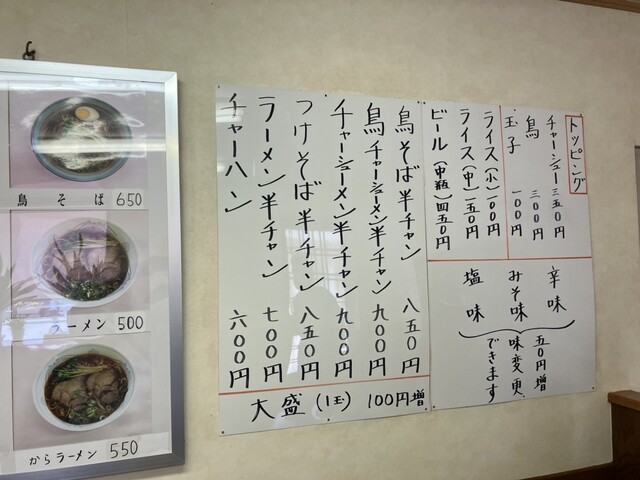 鳥そば 650
ラーメン 500
からラーメン 550
トッピング
チャーシュー 三五〇円
鳥 三〇〇円
玉子 一〇〇円
ライス(小) 一〇〇円
ライス(中) 一五〇円
ビール(中瓶) 四五〇円
辛味
みそ味
塩味
五〇円増
味変更
できます
鳥そば半チャン 八五〇円
鳥チャーシューメン半チャン 九〇〇円
チャーシューメン半チャン 九〇〇円
つけそば半チャン 八五〇円
ラーメン半チャン 七〇〇円
チャーハン 六〇〇円
大盛(1玉) 100円増